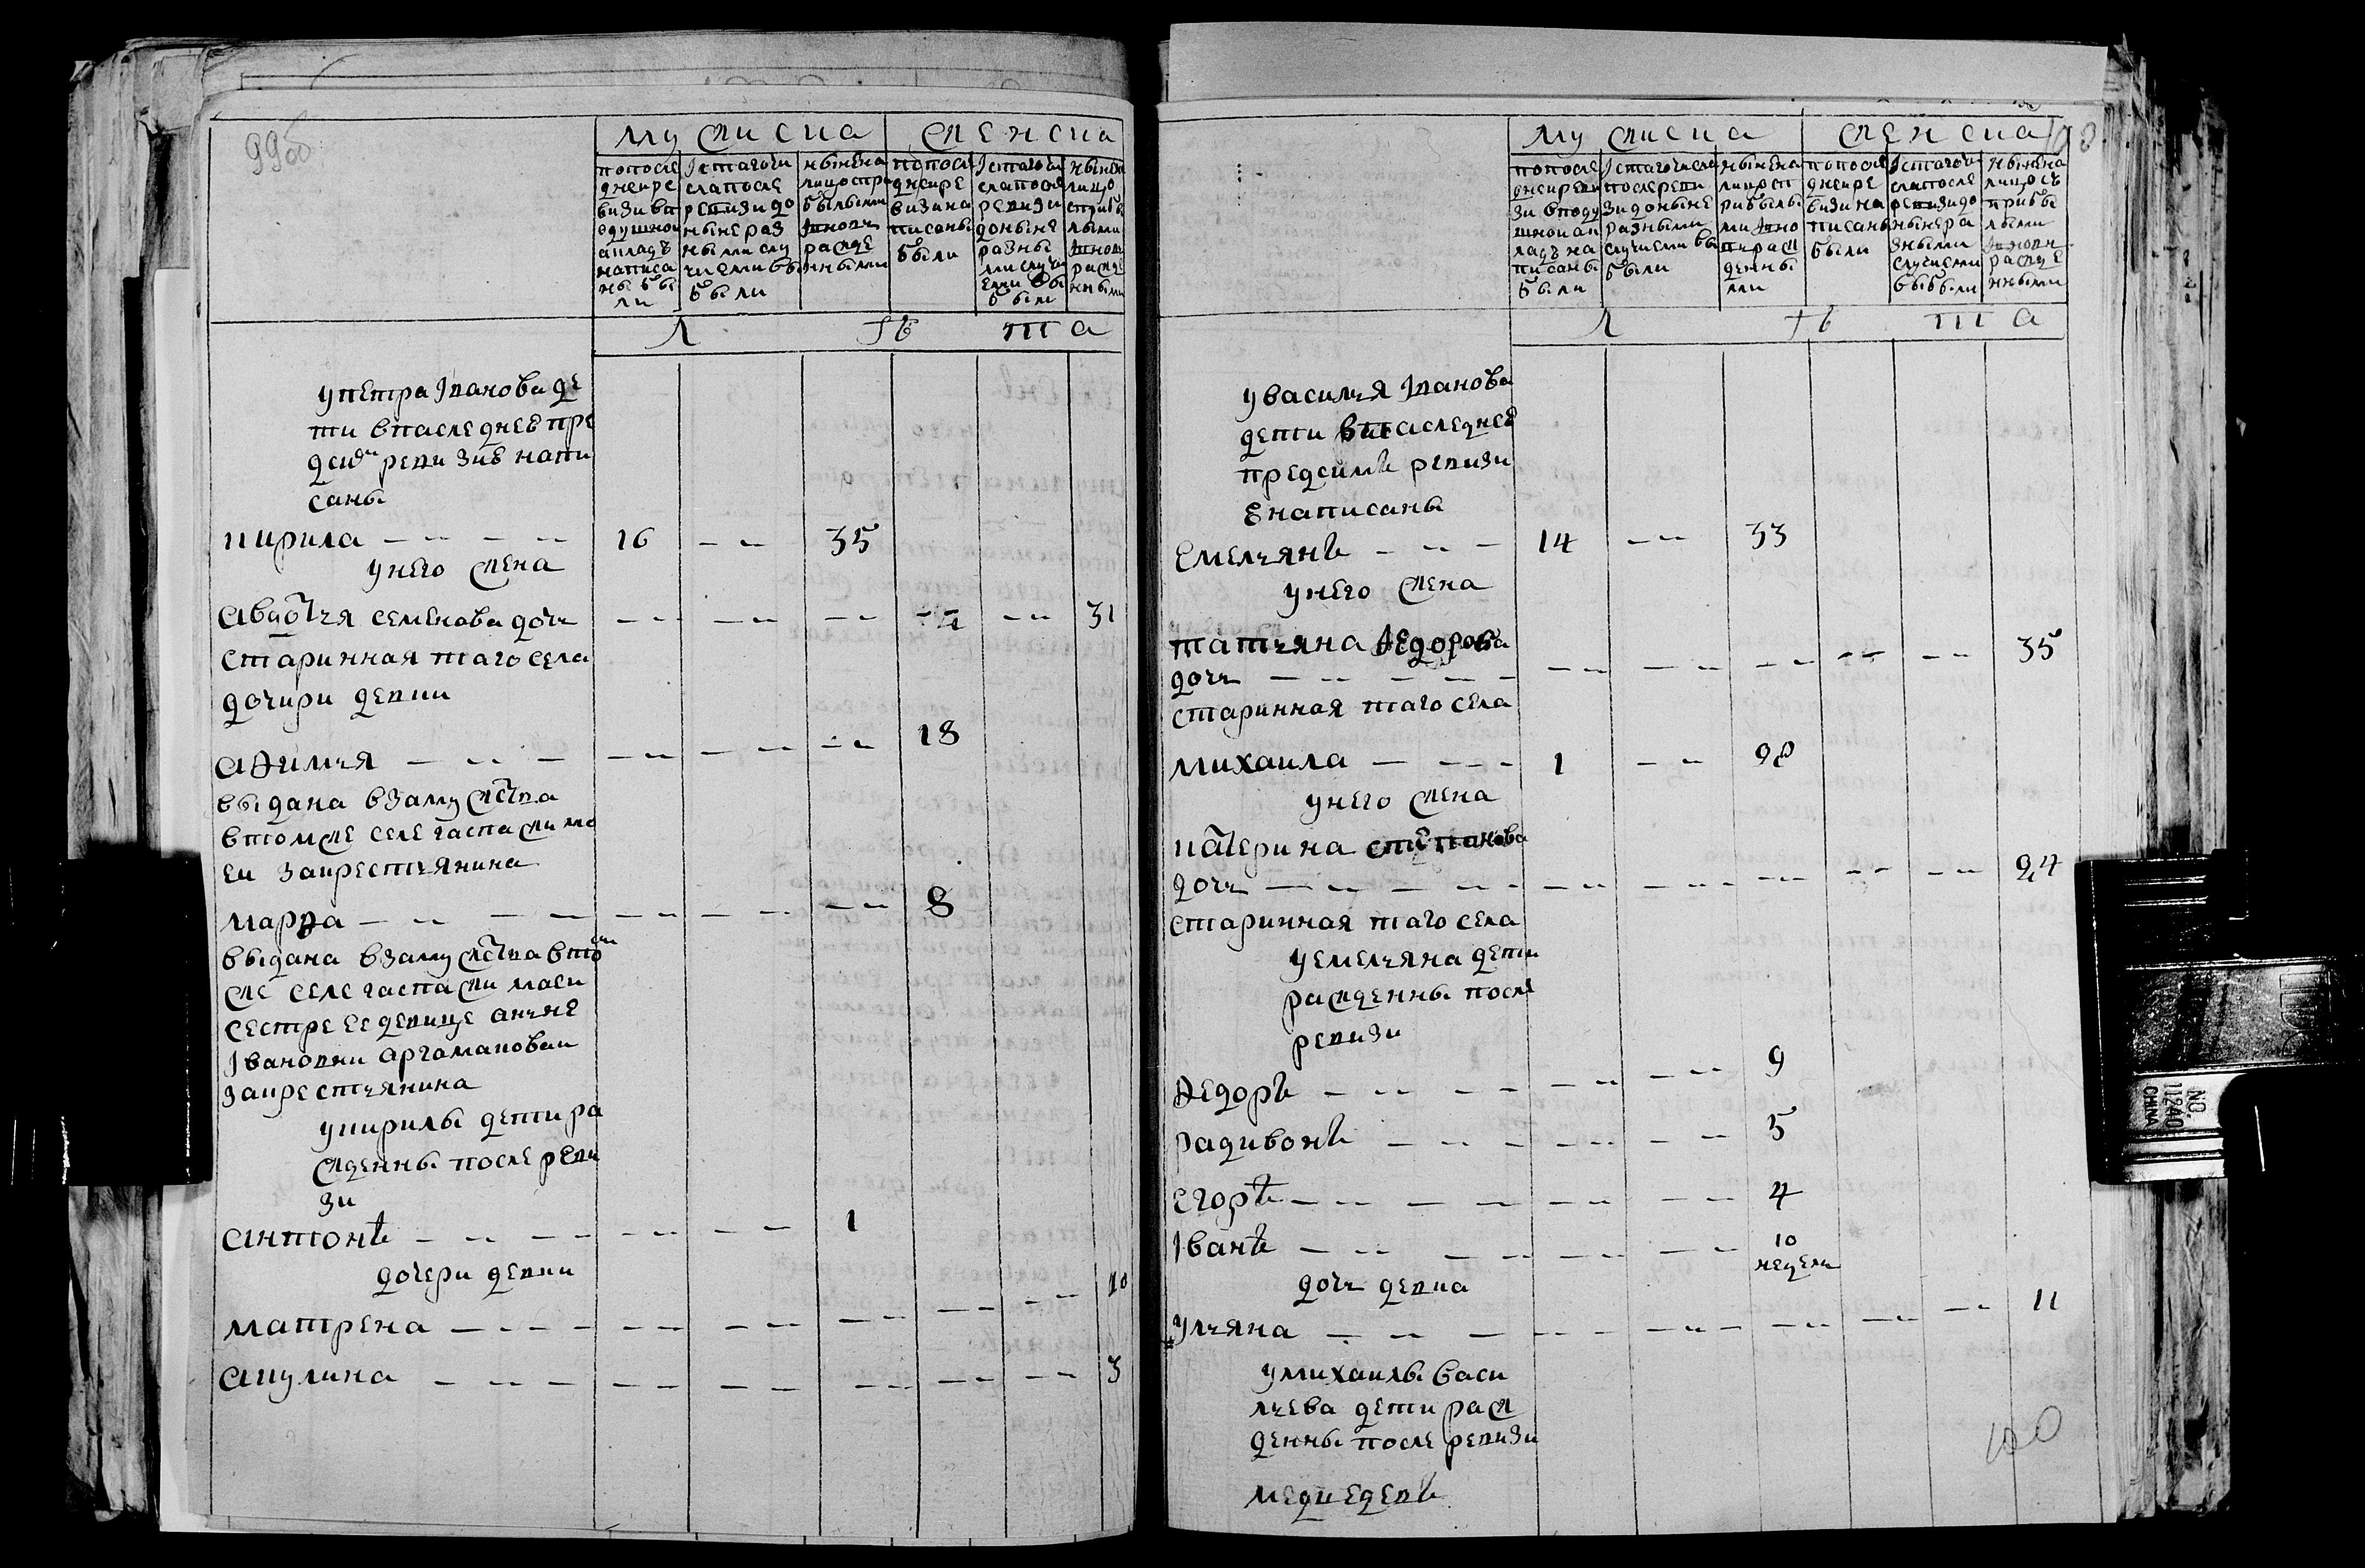 99об
мужеска
женска
по после
дней ре
визии в п
одушной
акладъ
написа
ны бы
ли
Iс того чи
сла после
ревизи до
ныне раз
ными слу
чиеми вы
были
ныне на
лицо с пр
былыми
и вновь
рожде
нными
по после
дней ре
визи на
писаны
были
Iс того чи
сла после
ревизи
доныне
разны
ми случи
еми вы
были
ныне
лицо
с приб
лыми
и вновь
рожде
нными
л ѣ та
у петра Iванова де
ти в последней пре
д сим ревизие напи
саны
кирила 16 35
у него жена
авдотья семенова дочь 31
старинная того села
дочири девки
афимья 18
выдана взамужство
в том же селе госпажи мо
ей за крестьянина
марфа 8
выдана взамужство в том
же селе госпажи маей
сестре ее девице анне
Iвановни аргамаковай
за крестьянина
у кирилы дети ра
жденны после реви
зи
антонъ 1
дочери девки
матрена 10
акулина 3
100
мужеска
женска
по после
дней реви
зи в поду
шной ок
ладъ на
писаны
были
Iс того числа
после реви
зи доныне
разными
случиеми вы
были
ныне на
лицо с п
рибылы
ми и вно
вь рож
денны
ми
по после
дней ре
визи на
писаны
были
Iс того чи
сла после
ревизи до
ныне ра
зными
случиеми
выбыли
ныне на
лицо съ
прибы
лыми
и вновь
рожде
нными
л ѣ та
у василья Iванова
дети в последней
пред симъ ревизи
е написаны
Емельянъ 14 33
у него жена
татьяна федорова
дочь 35
старинная того села
михаила 1 20
у него жена
катерина степанова
дочь 24
старинная того села
у емельяна дети
рожденны после
ревизи
федоръ 9
радивонъ 5
Егоръ 4
Iванъ 10
недель
дочь девка
ульяна 11
у михаилы васи
льева дети рож
денны после ревизи
медведевъ
100
NO.
112A40
CHINA